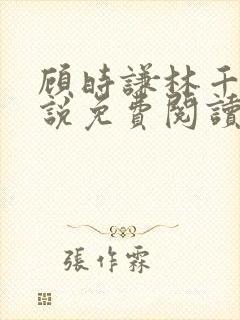 顾時謙林千
說免費閱讀
張作霖